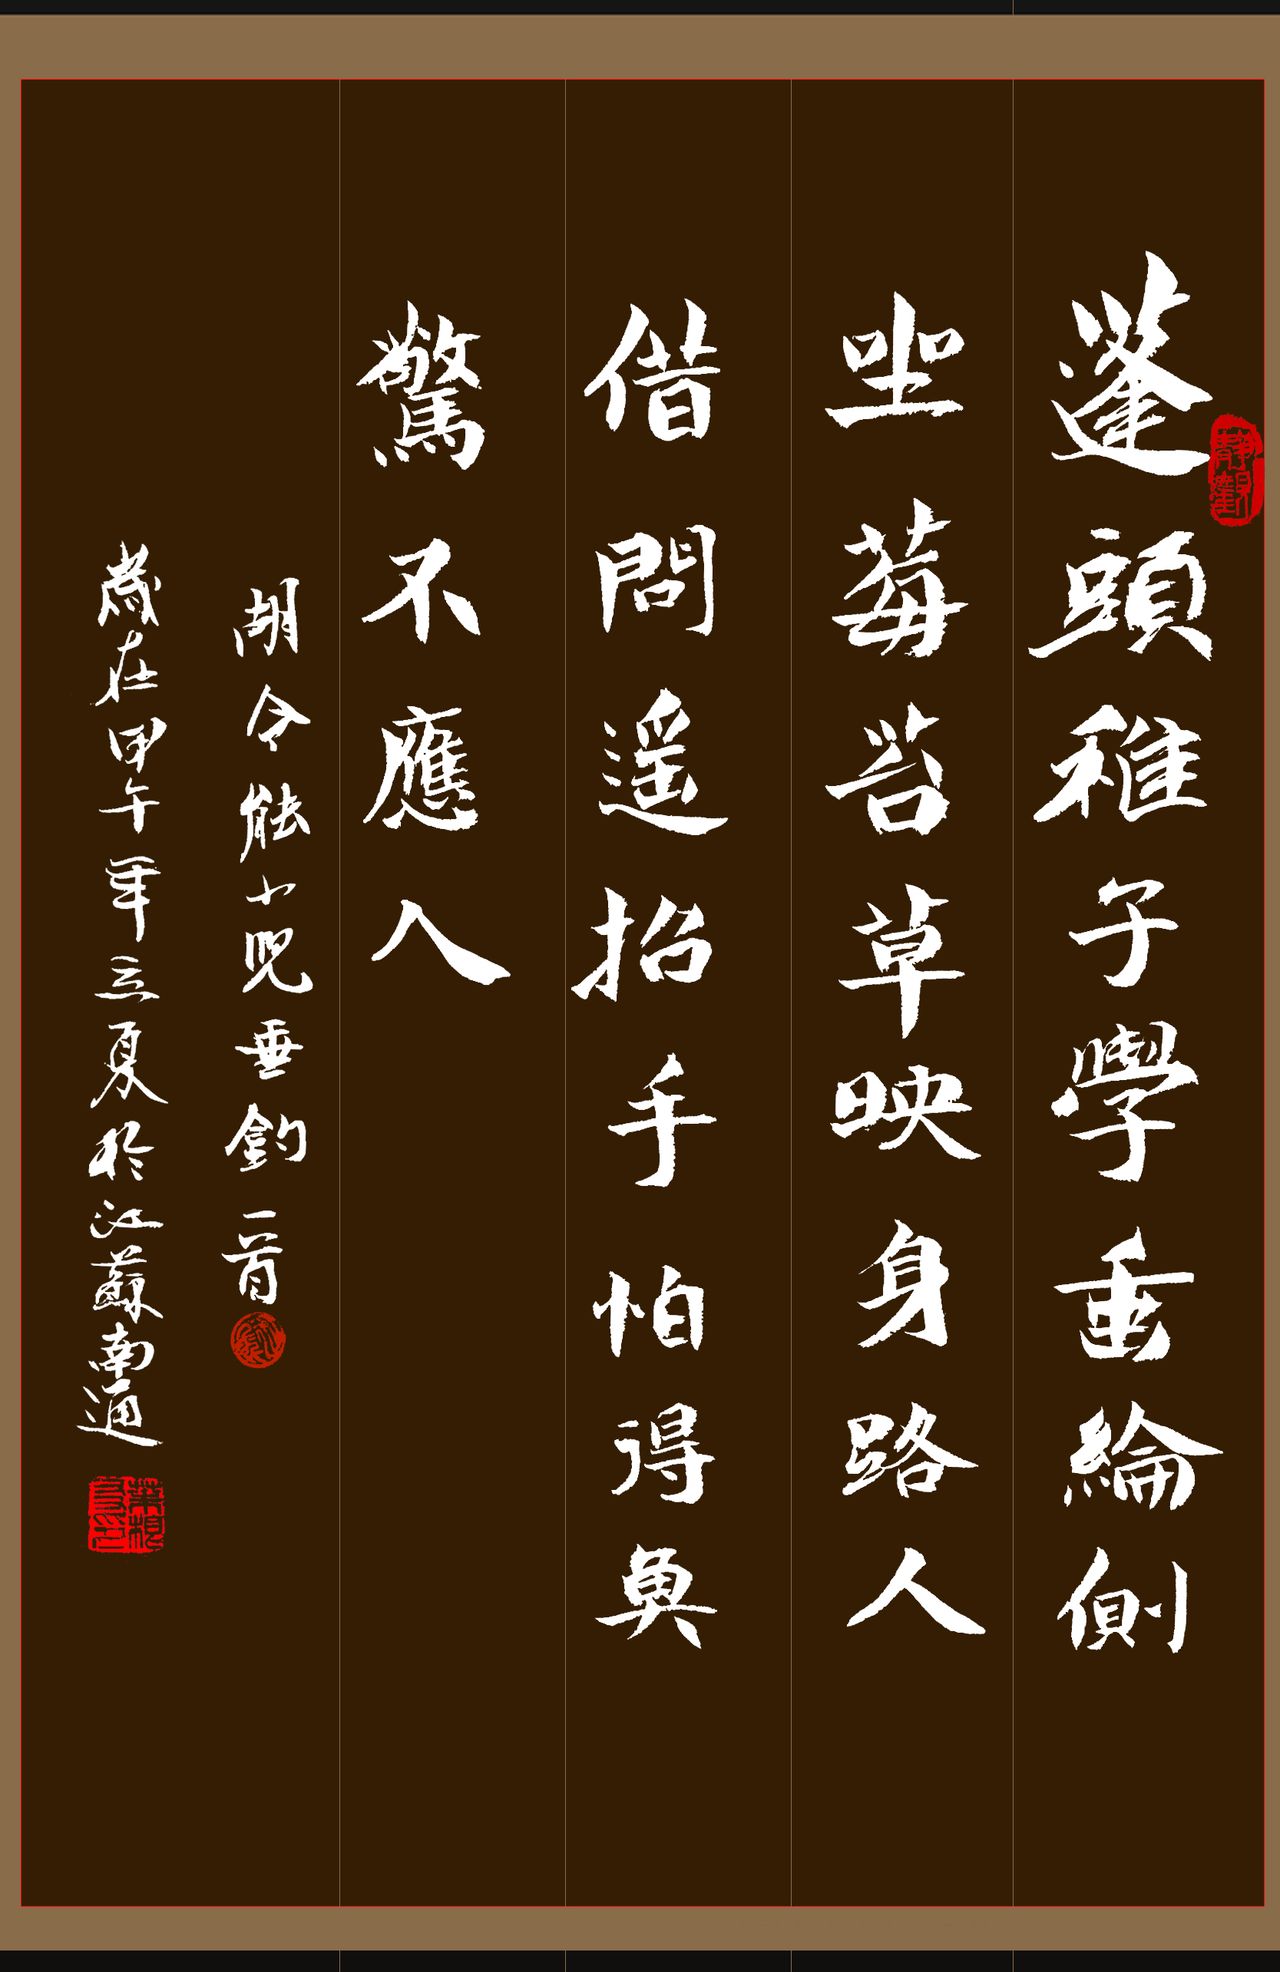 蓬頭稚子學垂綸側
坐莓苔草映身路人
借問遥招手怕得魚
驚不應人
胡令能小兒垂釣一首
歲在甲午年立夏於江蘇南通
靜觀